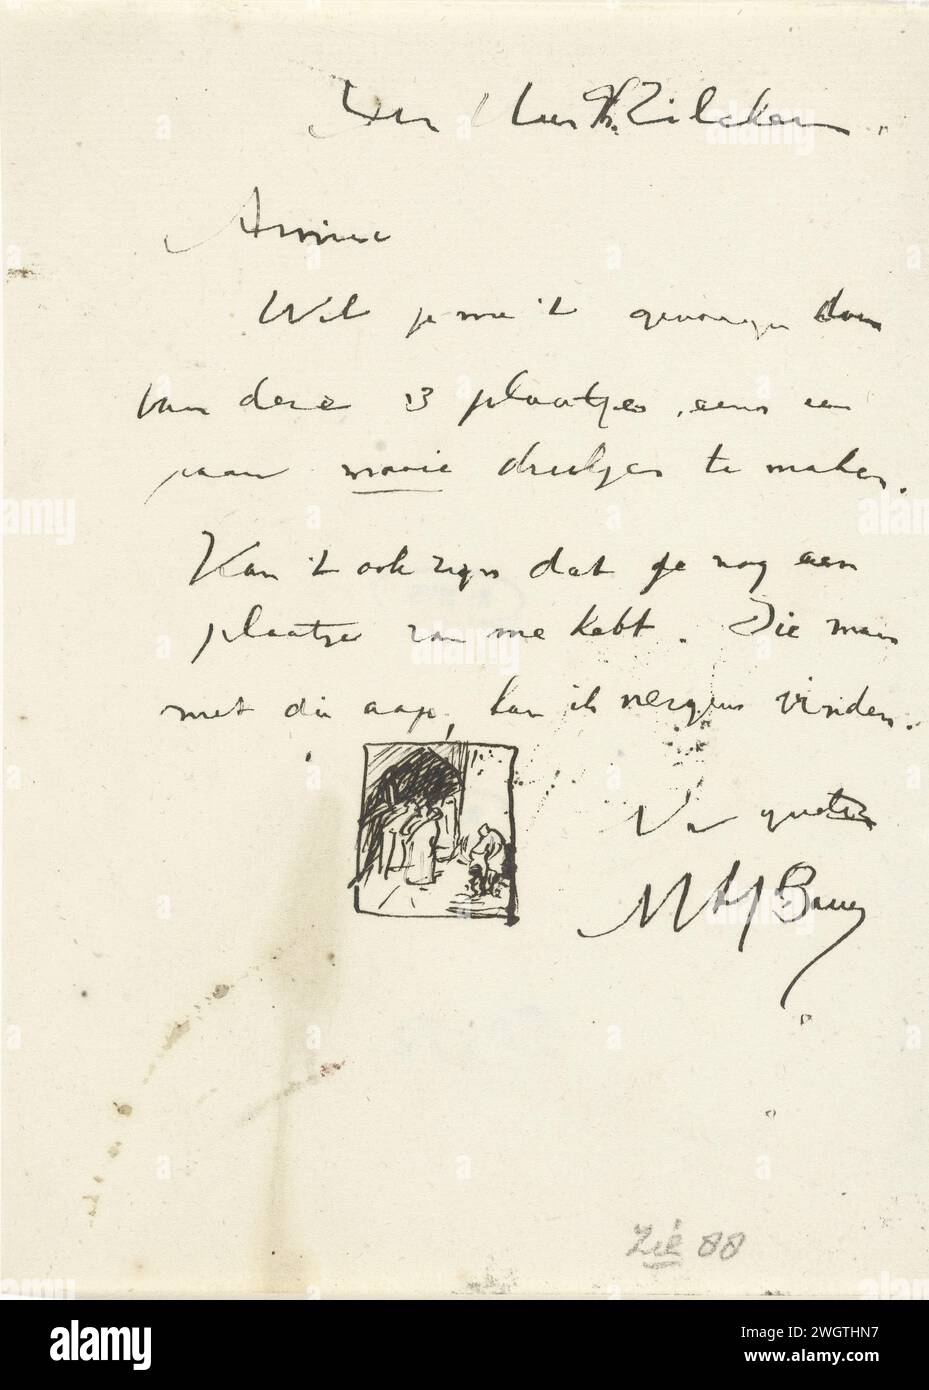 Den Heer Ph. Zilcken.
Amice
Wil je me 't genoegen doen
van deze 3 plaatjes, eens een
paar mooie drukjes te maken.
Kan 't ook zijn dat je nog een
plaatje van me hebt. Die man
met die aap, kan ik nergens vinden.
Na groeten
MAJ Bauer
Zié 88
alamy
Image ID: 2WGTHN7
www.alamy.com